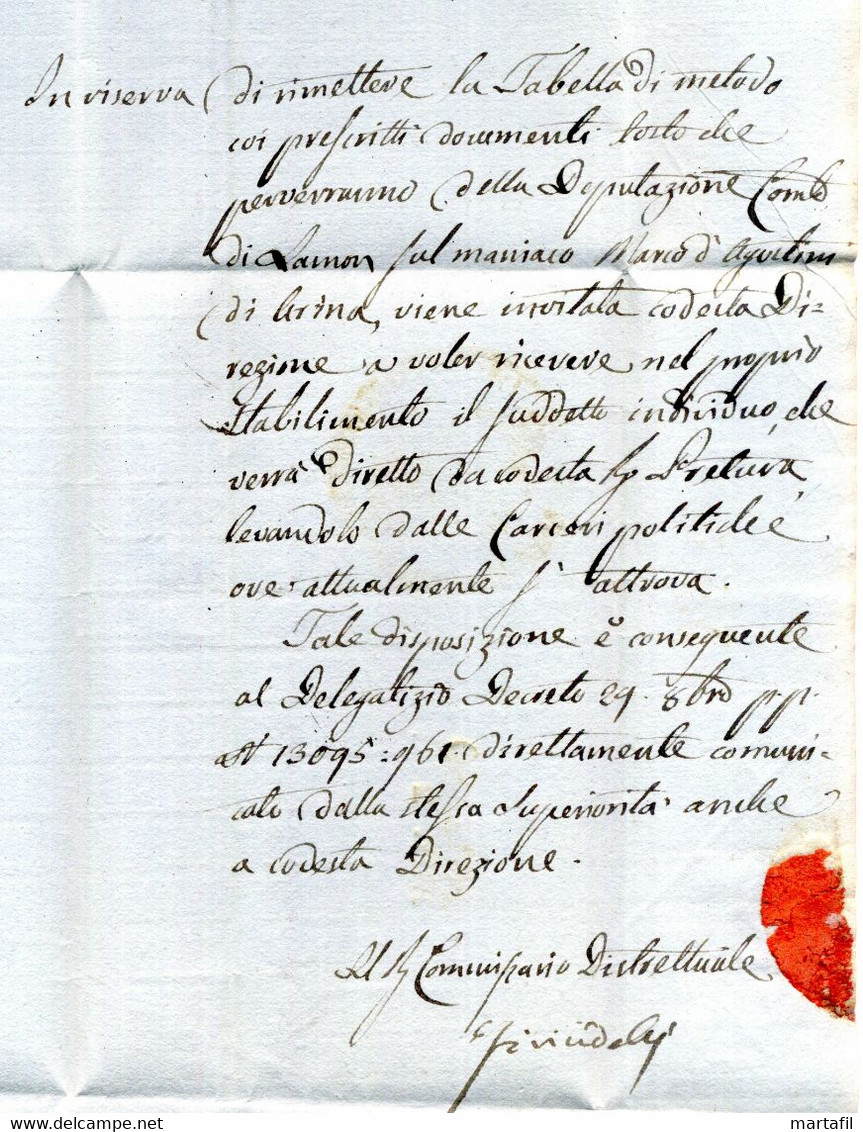 In riserva di rimettere la Tabella di metodo
coi prescritti documenti tosto che
perverranno della Deputazione Comle
di Lamon sul maniaco Marco d'Agostini
di Arina, viene invitata codesta Di-
rezione a voler ricevere nel proprio
Stabilimento il suddetto individuo, che
verrà diretto da codesta R. Pretura,
levandolo dalle Carceri politiche
ove attualmente s'attrova.
Tale disposizione è conseguente
al Delegatizio Decreto 29. 8bre p.p.
N. 13095=961. direttamente comuni-
cato dalla stessa Superiorità anche
a codesta Direzione.
Il R. Commissario Distrettuale
www.delcampe.net
martafil